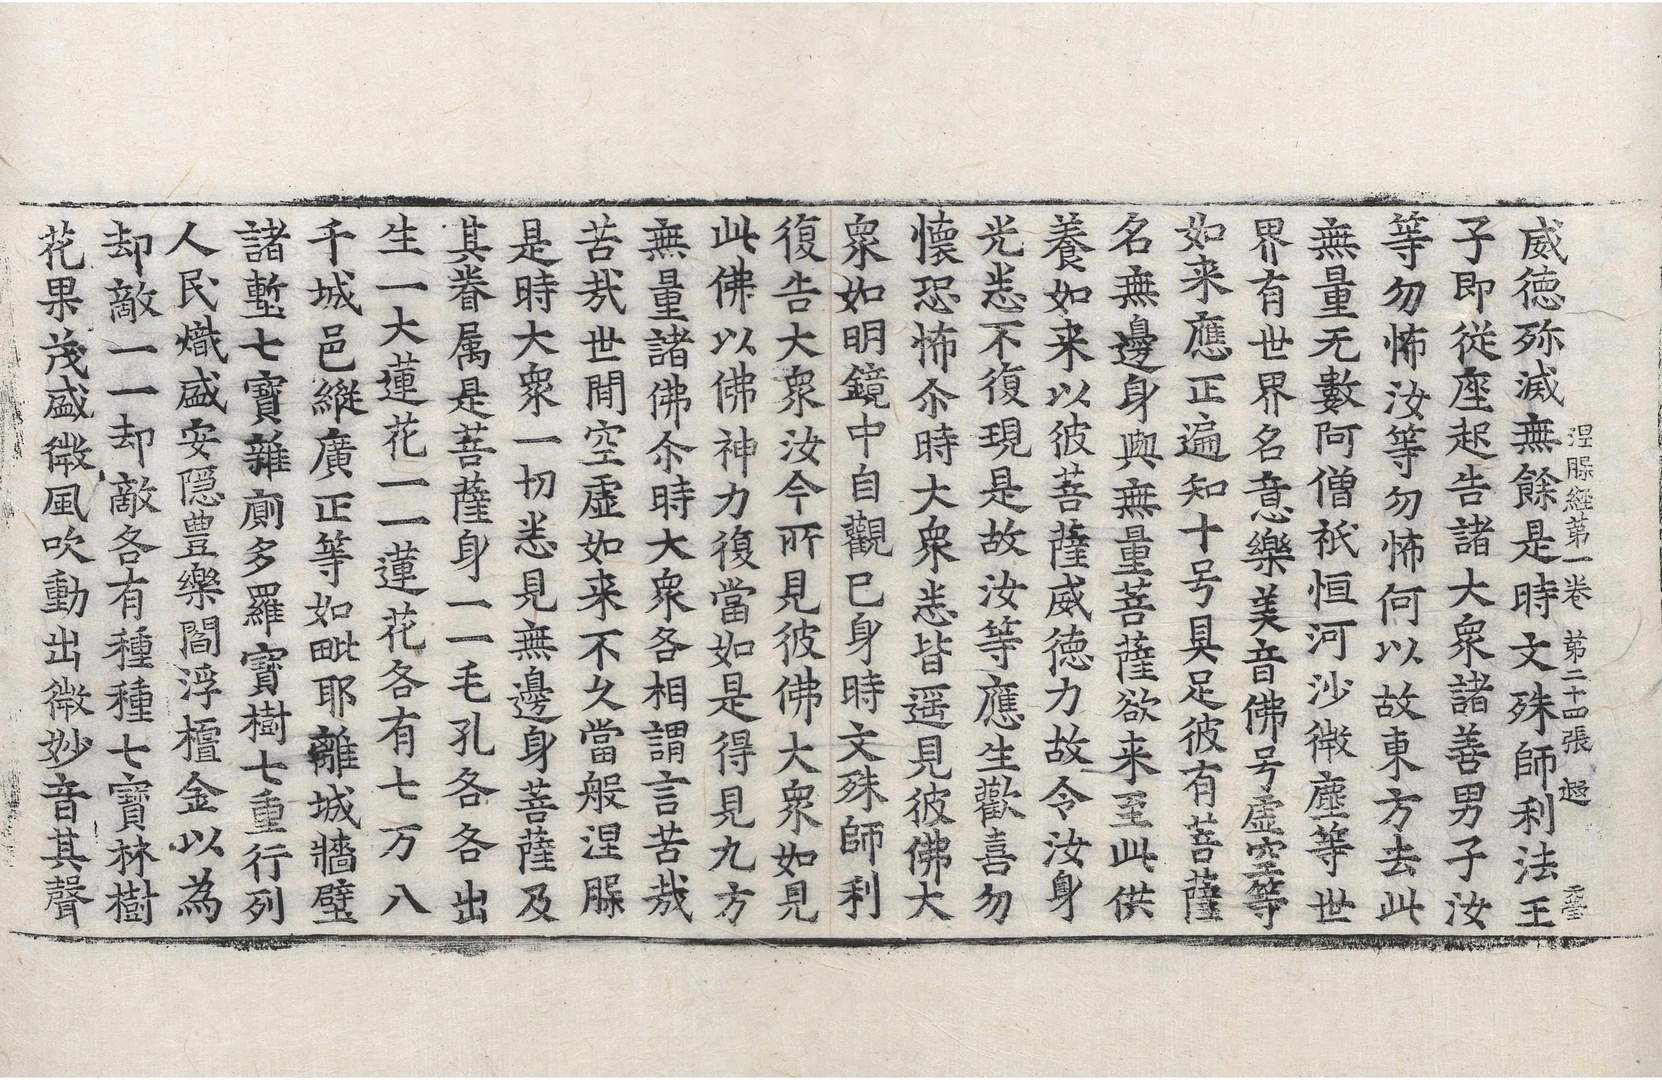 涅脲經第一卷 第二十四張 趣
威德弥滅無餘是時文殊師利法王
子即從座起告諸大衆諸善男子汝
等勿怖汝等勿怖何以故東方去此
無量无數阿僧祇恒河沙微塵等世
界有世界名意樂美音佛号虛空等
如来應正遍知十号具足彼有菩薩
名無邊身與無量菩薩欲来至此供
養如来以彼菩薩威德力故令汝身
光悉不復現是故汝等應生歡喜勿
懷恐怖尒時大衆悉皆遥見彼佛大
衆如明鏡中自觀己身時文殊師利
復告大衆汝今所見彼佛大衆如見
此佛以佛神力復當如是得見九方
無量諸佛尒時大衆各相謂言苦哉
苦哉世間空虛如来不久當般涅脲
是時大衆一切悉見無邊身菩薩及
其眷属是菩薩身一一毛孔各各出
生一大蓮花一一蓮花各有七万八
千城邑縱廣正等如毗耶離城牆壁
諸塹七寶雜廁多羅寶樹七重行列
人民熾盛安隱豊樂閻浮檀金以為
却敵一一却敵各有種種七寶林樹
花果茂盛微風吹動出微妙音其聲